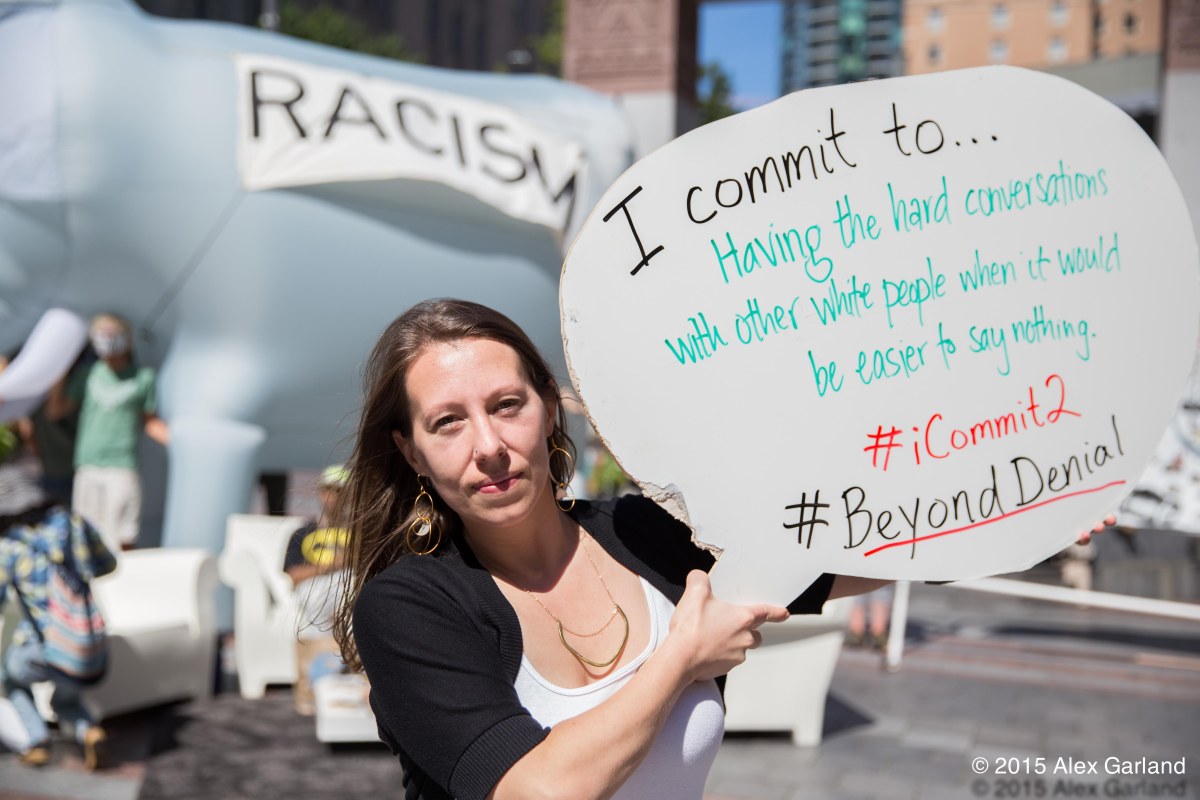 RACISM
I commit to...
Having the hard conversations
with other white people when it would
be easier to say nothing.
#iCommit2
#BeyondDenial
© 2015 Alex Garland
© 2015 Alex Garland